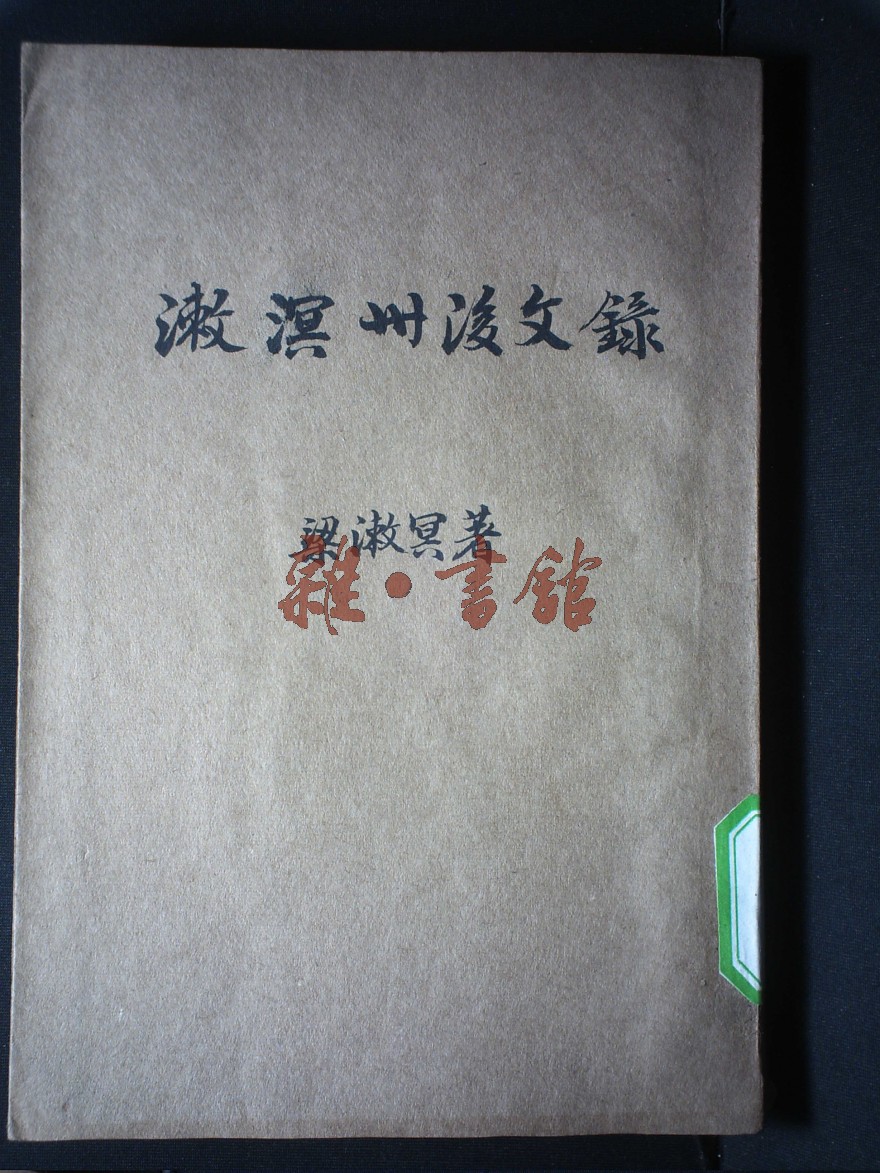 漱溟卅後文錄
梁漱冥著
雜·書館